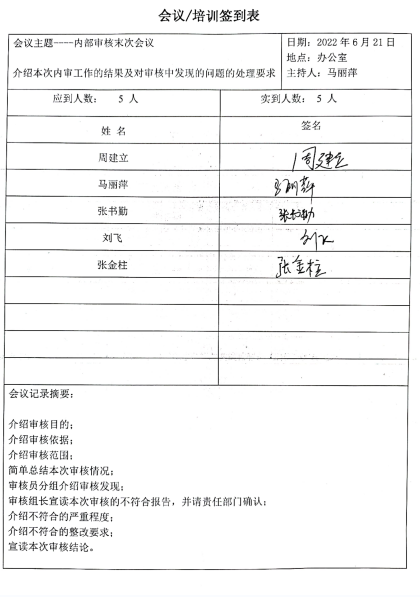 会议/培训签到表
会议主题----内部审核末次会议
介绍本次内审工作的结果及对审核中发现的问题的处理要求
日期：2022年6月21日
地点：办公室
主持人：马丽萍
应到人数： 5 人
实到人数：5 人
姓 名
签名
周建立
周建立
马丽萍
马丽萍
张书勤
张书勤
刘飞
刘飞
张金柱
张金柱
会议记录摘要：
介绍审核目的；
介绍审核依据；
介绍审核范围；
简单总结本次审核情况；
审核员分组介绍审核发现；
审核组长宣读本次审核的不符合报告，并请责任部门确认；
介绍不符合的严重程度；
介绍不符合的整改要求；
宣读本次审核结论。